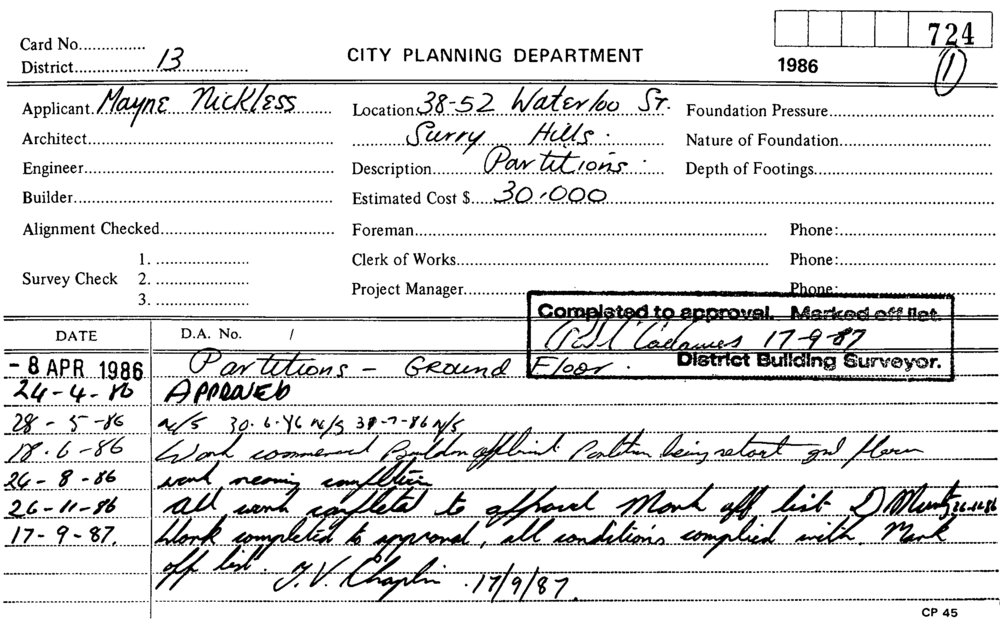 724
Card No...............
District 13
CITY PLANNING DEPARTMENT
1986
(1)
Applicant Mayne Nickless
Location 38-52 Waterloo St.
Foundation Pressure
Architect
Surry Hills.
Nature of Foundation
Engineer
Description Partitions.
Depth of Footings
Builder
Estimated Cost $ 30,000
Alignment Checked
Foreman
Phone:
Survey Check
1.
2.
3.
Clerk of Works
Phone:
Project Manager
Phone:
Completed to approval. Marked off list.
17-9-87
District Building Surveyor.
DATE D.A. No. /
- 8 APR 1986 Partitions - Ground Floor.
24-4-86 APPROVED
28-5-86 n/s 30.6.86 n/s n/s
18.6-86 Work commenced being
26-8-86 work nearing completion
26-11-86 All work completed to approval Mark off list D 26.11.86
17-9-87. Work completed to approval, all conditions complied with. Mark
off list. T.V. Chaplin. 17/9/87.
CP 45